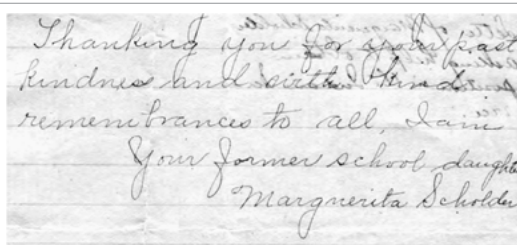 Thanking you for your past
kindness and with kind
remembrances to all, I am
Your former school daughte
Marguerita Scholder